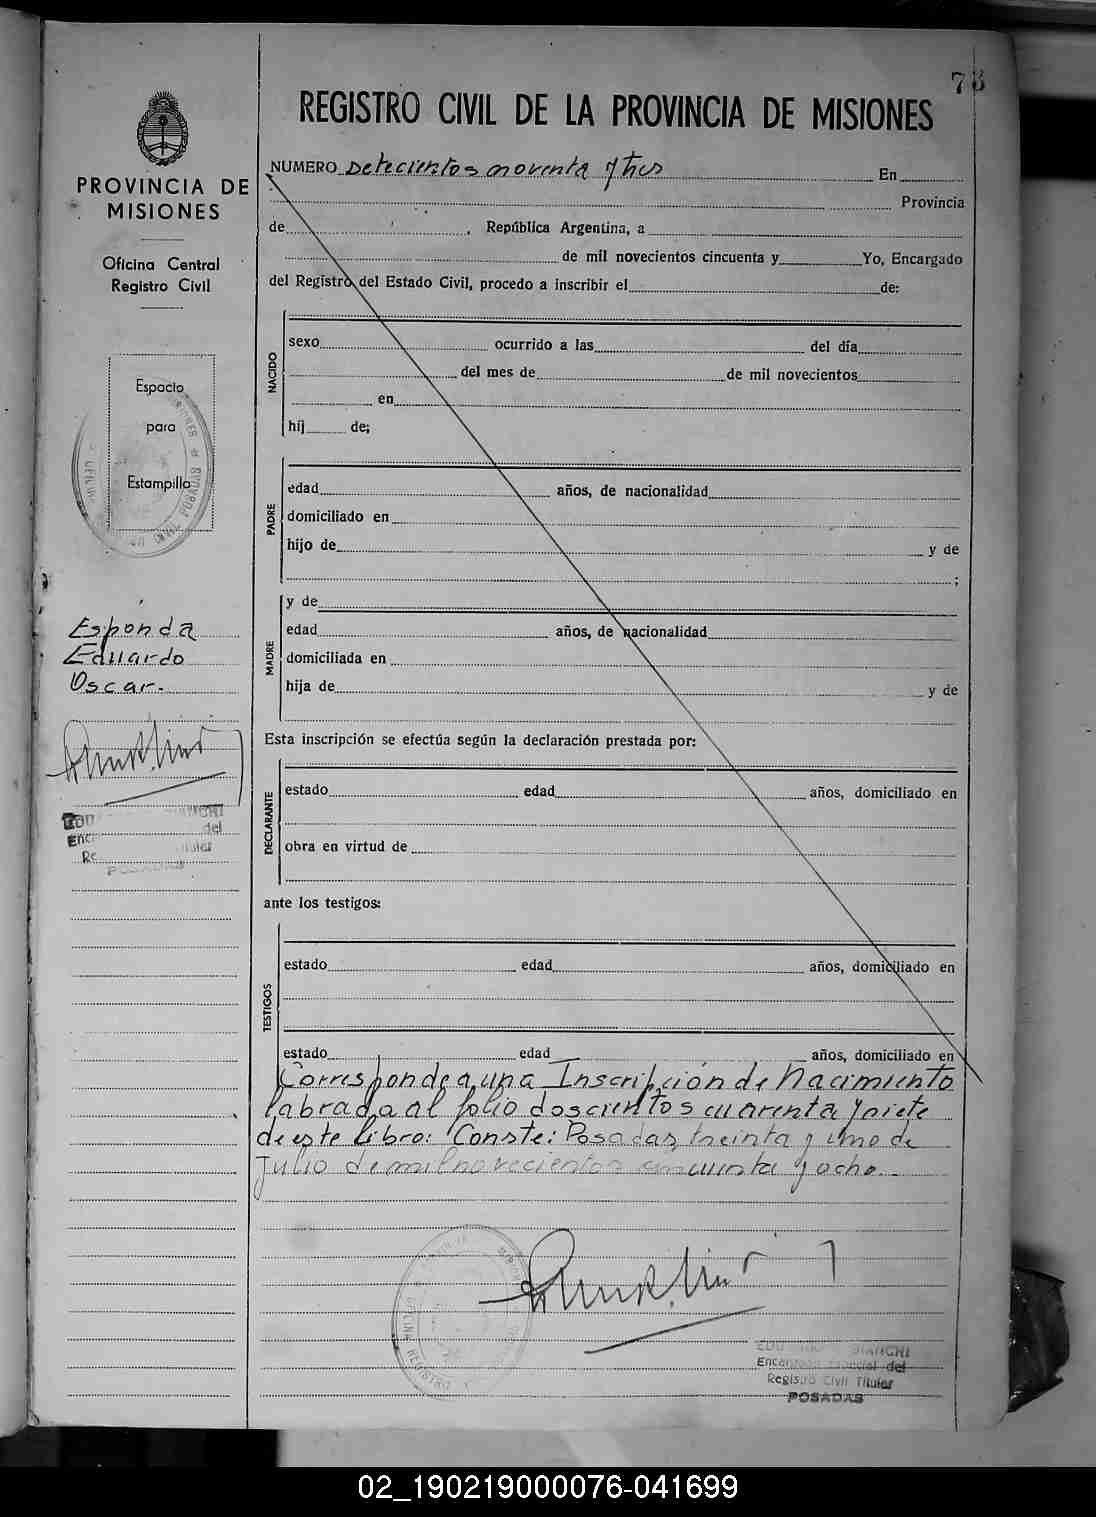 REGISTRO CIVIL DE LA PROVINCIA DE MISIONES
PROVINCIA DE
MISIONES
Oficina Central
Registro Civil
Espacio
para
Estampilla
Esponda
Eduardo
Oscar.
BIANCHI
del
Titular
POSADAS
NUMERO Setecientos noventa y tres En
Provincia
de , República Argentina, a
de mil novecientos cincuenta y Yo, Encargado
del Registro del Estado Civil, procedo a inscribir el de:
NACIDO
sexo ocurrido a las del día
del mes de de mil novecientos
en
hij de;
PADRE
edad años, de nacionalidad
domiciliado en
hijo de y de
;
MADRE
y de
edad años, de nacionalidad
domiciliada en
hija de y de
Esta inscripción se efectúa según la declaración prestada por:
DECLARANTE
estado edad años, domiciliado en
obra en virtud de
ante los testigos:
TESTIGOS
estado edad años, domiciliado en
estado edad años, domiciliado en
Corresponde a una Inscripción de Nacimiento
labrada al folio doscientos cuarenta y siete
de este libro: Conste: Posadas, treinta y uno de
Julio de mil novecientos cincuenta y ocho.
BIANCHI
Encargado Especial del
Registro Civil Titular
POSADAS
02_190219000076-041699